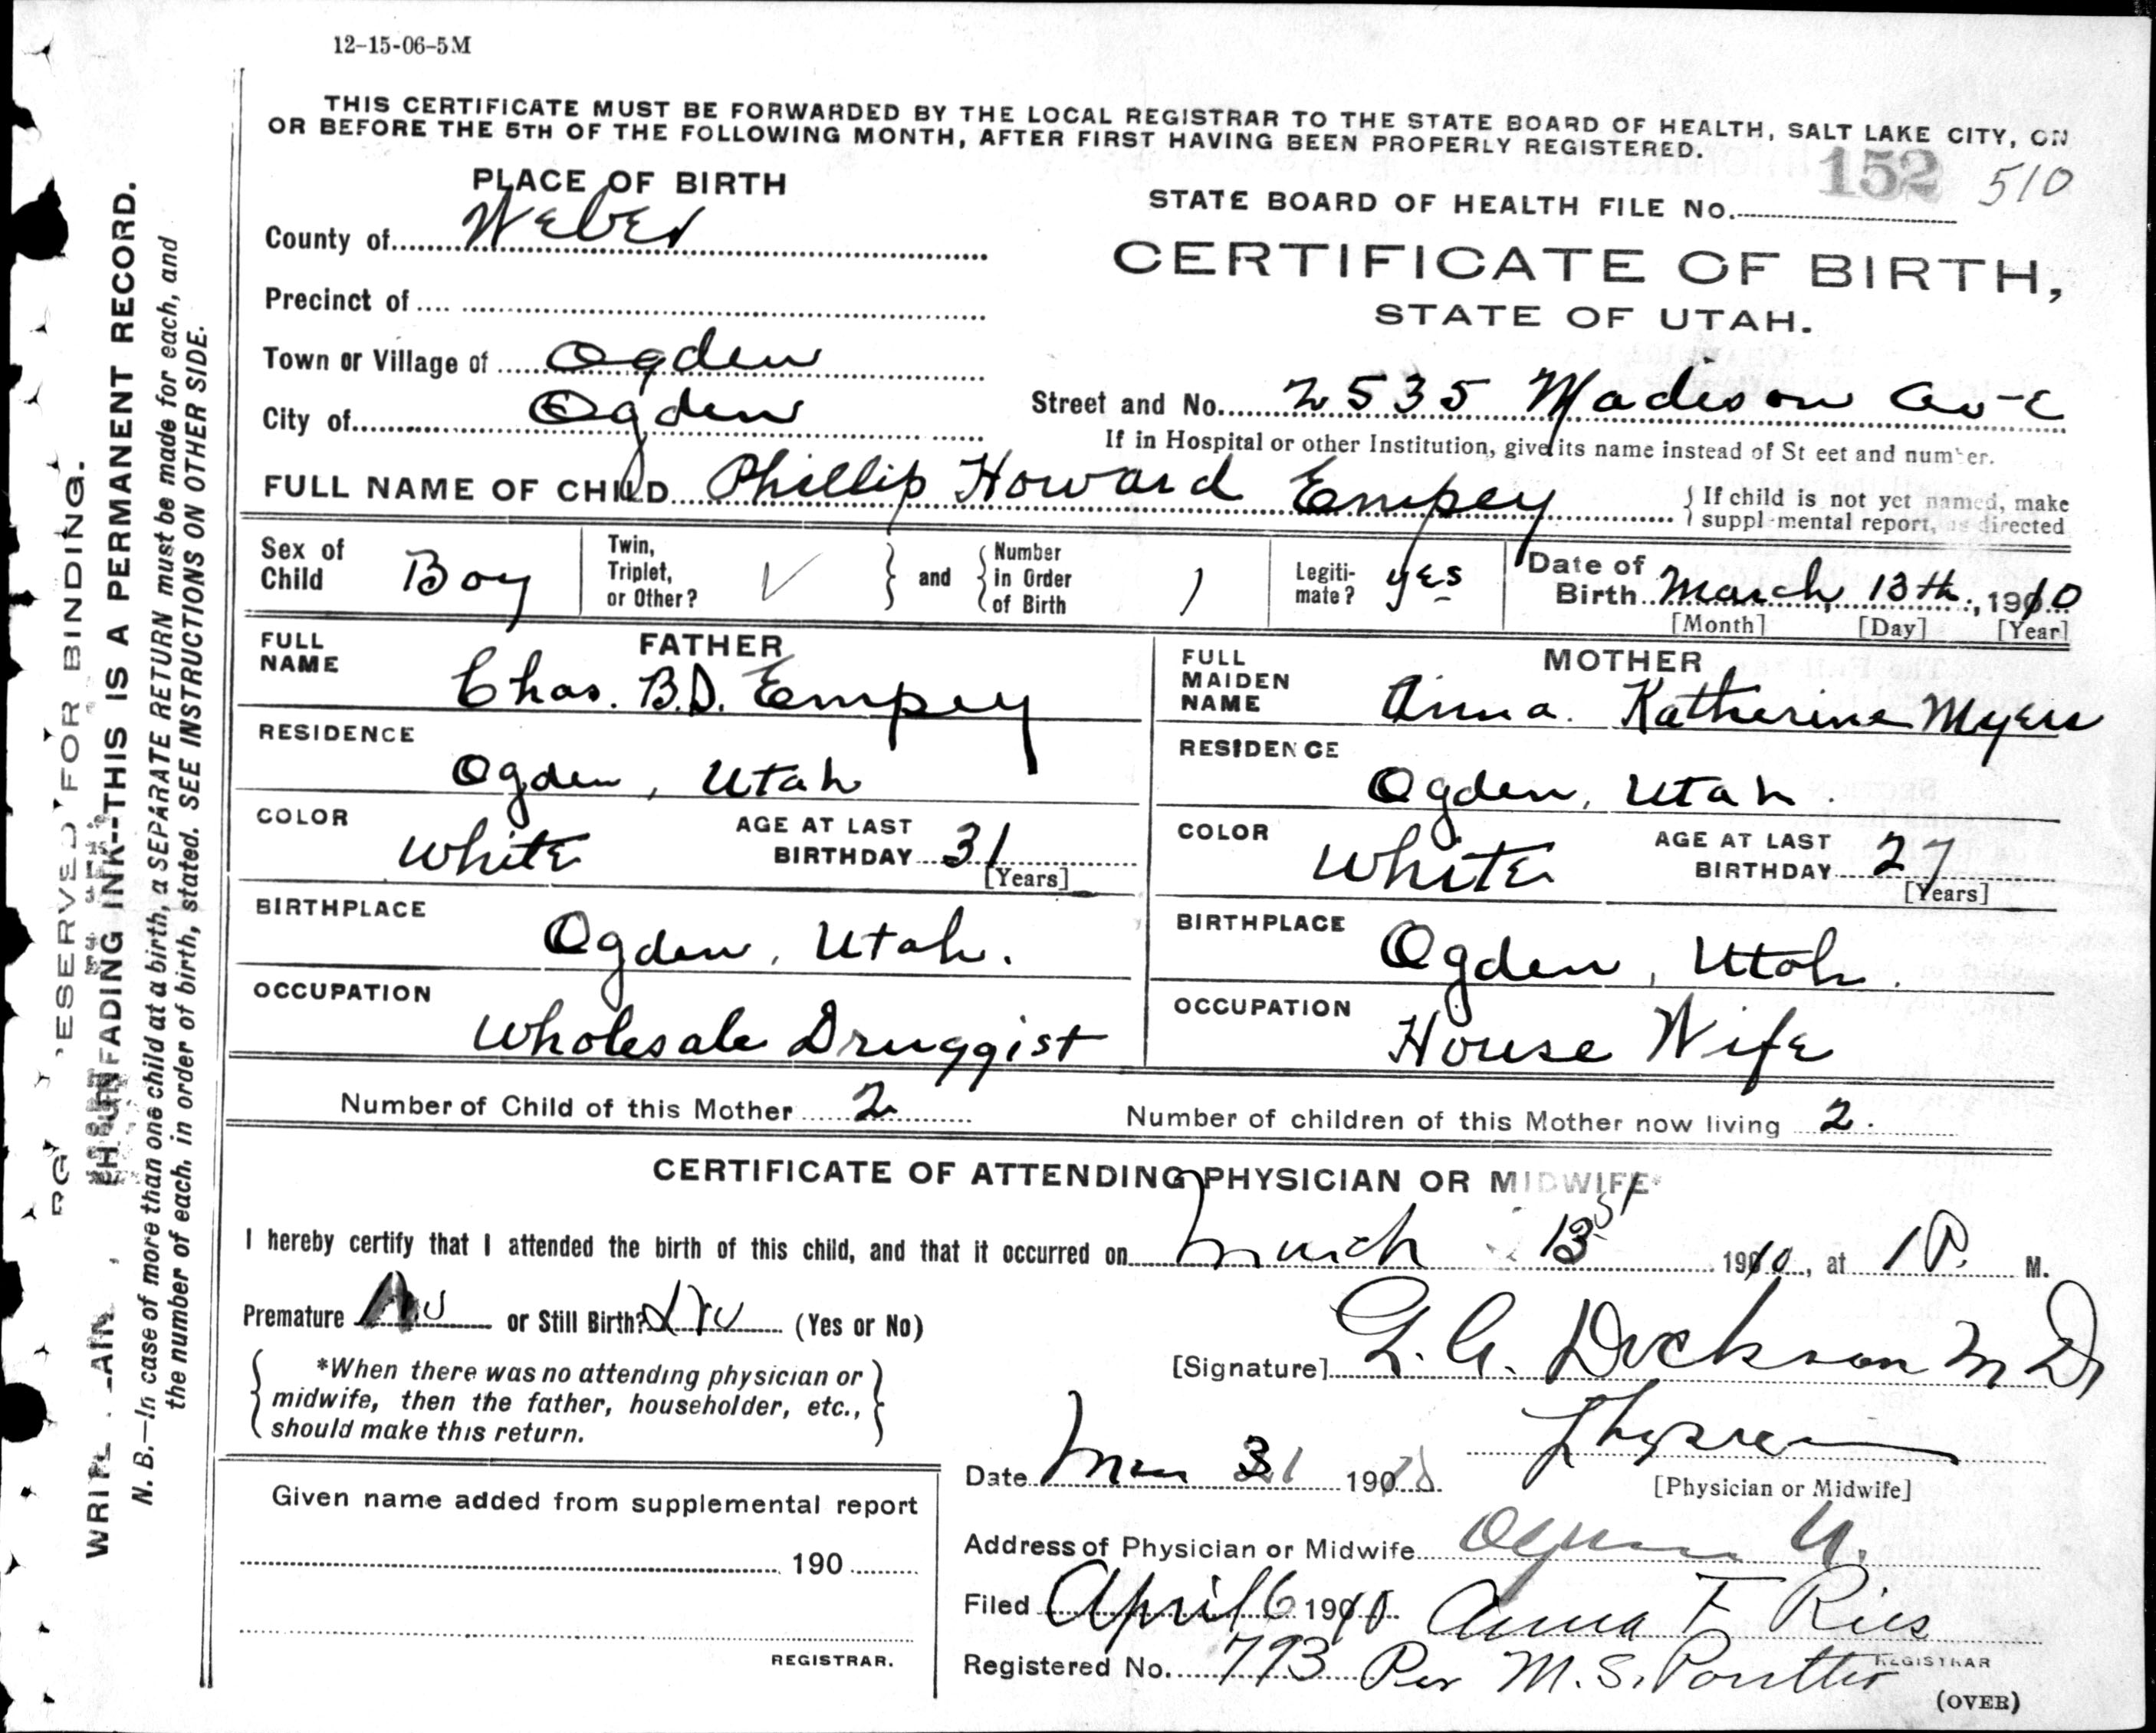 12-15-06-5M
THIS CERTIFICATE MUST BE FORWARDED BY THE LOCAL REGISTRAR TO THE STATE BOARD OF HEALTH, SALT LAKE CITY, ON
OR BEFORE THE 5TH OF THE FOLLOWING MONTH, AFTER FIRST HAVING BEEN PROPERLY REGISTERED.
PLACE OF BIRTH
152 510
STATE BOARD OF HEALTH FILE No.
County of Weber
CERTIFICATE OF BIRTH,
STATE OF UTAH.
Precinct of
Town or Village of Ogden
City of Ogden
Street and No. 2535 Madison Ave
If in Hospital or other Institution, give its name instead of St eet and number.
FULL NAME OF CHILD Phillip Howard Empey
If child is not yet named, make
suppl mental report, as directed
Sex of Child Boy
Twin, Triplet, or Other? ✓ and Number in Order of Birth 1
Legiti-mate? yes
Date of Birth March 13th, 1910
[Month] [Day] [Year]
FATHER
FULL NAME Chas. B.D. Empey
RESIDENCE Ogden, Utah
COLOR White AGE AT LAST BIRTHDAY 31
[Years]
BIRTHPLACE Ogden, Utah.
OCCUPATION Wholesale Druggist
MOTHER
FULL MAIDEN NAME Anna. Katherine Myers
RESIDENCE Ogden, Utah.
COLOR White AGE AT LAST BIRTHDAY 27
[Years]
BIRTHPLACE Ogden, Utah.
OCCUPATION House Wife
Number of Child of this Mother 2
Number of children of this Mother now living 2.
CERTIFICATE OF ATTENDING PHYSICIAN OR MIDWIFE*
I hereby certify that I attended the birth of this child, and that it occurred on March 13 1910, at 1 P. M.
Premature No or Still Birth? No (Yes or No)
*When there was no attending physician or
midwife, then the father, householder, etc.,
should make this return.
[Signature] Dickson M D
[Physician or Midwife]
Date Mar 31 1910.
Address of Physician or Midwife Ogden U.
Filed April 6 1910 Anna F Ries
REGISTRAR
Registered No. 793 Per M. S.
(OVER)
Given name added from supplemental report
190
REGISTRAR.
ESERVED FOR BINDING.
UNFADING INK--THIS IS A PERMANENT RECORD.
N. B.—In case of more than one child at a birth, a SEPARATE RETURN must be made for each, and
the number of each, in order of birth, stated. SEE INSTRUCTIONS ON OTHER SIDE.